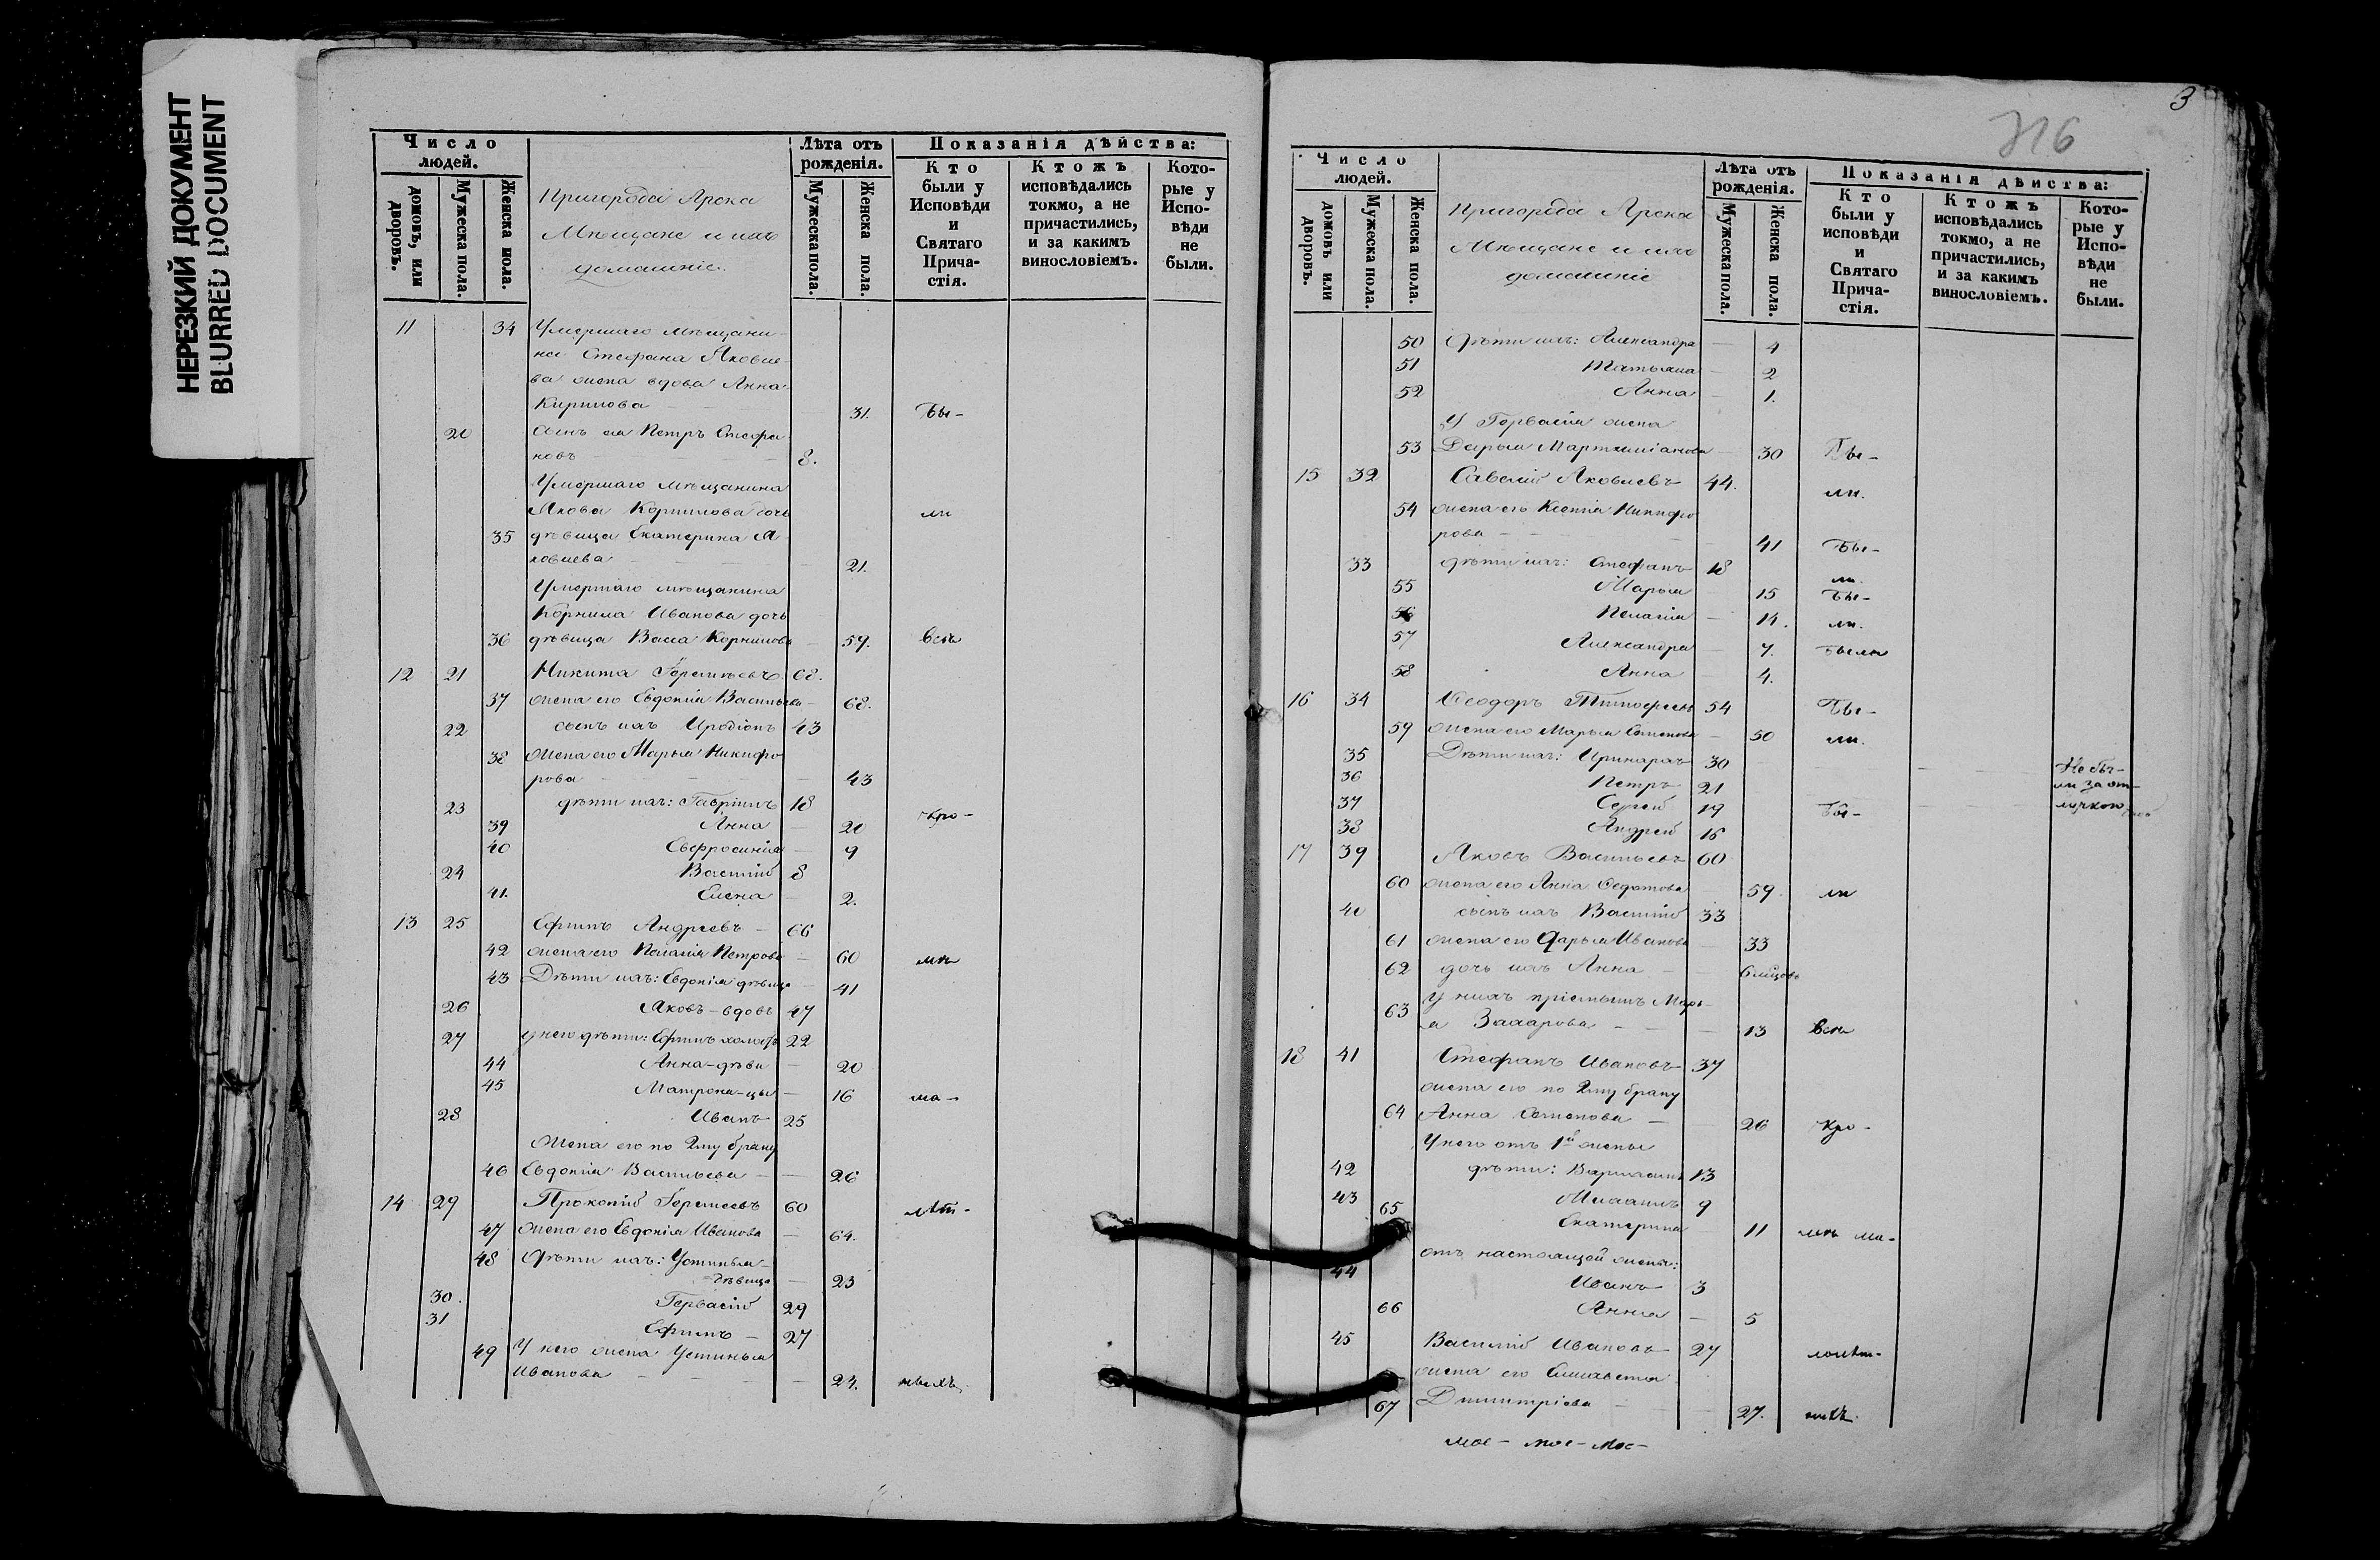 НЕРЕЗКИЙ ДОКУМЕНТ
BLURRED DOCUMENT
Число людей.
домовъ, или дворовъ.
Мужеска пола.
Женска пола.
Пригорода Арска
Мѣщане и ихъ
домашніе.
Лѣта отъ рожденія.
Мужеска пола.
Женска пола.
Показанія дѣйства:
Кто были у Исповѣди и Святаго Прича-стія.
Ктожъ исповѣдались токмо, а не причастились, и за какимъ винословіемъ.
Кото-рые у Испо-вѣди не были.
11 34 Умершаго мѣщани-
на Стефана Яковле-
ва жена вдова Анна
Кирилова 31. Бы-
20 Сынъ ея Петръ Стефа-
новъ 8.
Умершаго мѣщанина
Якова Корнилова дочь ли
35 дѣвица Екатерина Я-
ковлева 21.
Умершаго мѣщанина
Корнила Иванова дочь
36 дѣвица Васса Корнилова 59. всѣ
12 21 Никита 68.
37 жена его Евдокія Васильева 68.
22 сынъ ихъ Иродіонъ 43
38 Жена его Марья Никифо
рова 43
23 дѣти ихъ: Гавріилъ 18
39 Анна 20 кро-
40 Евфросинія 9
24 Василій 8
41. Елена 2.
13 25 Ефимъ Андреевъ 66
42 жена его Пелагія Петрова 60 мѣ
43 Дѣти ихъ: Евдокія дѣвица 41
26 Яковъ - вдовъ 47
27 у него дѣти: Ефимъ холостъ 22
44 Анна - дѣви 20
45 Матрона - цы 16 ма-
28 Иванъ 25
Жена его по 2му браку
46 Евдокія Васильева 26
14 29 Прокопій 60 лѣт-
47 жена его Евдокія Иванова 64.
48 Дѣти ихъ: Устинья -
дѣвица 23
30. Гервасій 29
31 Ефимъ 27
49 У него жена Устинья
Иванова 24. ныхъ.
3
316
Число людей.
домовъ или дворовъ.
Мужеска пола.
Женска пола.
Пригорода Арска
Мѣщане и ихъ
домашніе
Лѣта отъ рожденія.
Мужеска пола.
Женска пола.
Показанія дѣйства:
Кто были у исповѣди и Святаго Прича-стія.
Ктожъ исповѣдались токмо, а не причастились, и за какимъ винословіемъ.
Кото-рые у Испо-вѣди не были.
50 Дѣти ихъ: Александра 4
51 Татьяна 2
52 Анна 1.
У Гервасія жена
53 Дарья 30 Бы-
15 32 Савелій Яковлевъ 44. ли.
54 жена его Ксенія Никифо
рова 41 Бы-
33 дѣти ихъ: Стефанъ 18 ли.
55 Марья 15 Бы-
56 Пелагія 14. ли.
57 Александра 7. Были
58 Анна 4.
16 34 Ѳеодоръ 54 Бы-
59 Жена его Марья Семенова 50 ли.
35 Дѣти ихъ: Иринархъ 30 Не бы-
36 Петръ 21 ли за от-
37 Сергій 19 Бы- лучкою
38 Андрей 16
17 39 Яковъ Васильевъ 60
60 жена его Анна Ѳедотова 59. ли
40 сынъ ихъ Василій 33
61 жена его Дарья Иванова 33
62 дочь ихъ Анна 6 мѣцовъ
63 у нихъ пріемышъ Марь-
я Захарова 13 всѣ
18 41 Стефанъ Ивановъ 37
жена его по 2му браку
64 Анна Семенова 26 Кро-
У него отъ 1й жены
42 дѣти: 13
43 Михаилъ 9
65 Екатерина 11 мѣ ма-
отъ настоящей жены:
44 Иванъ 3
66 Анна 5
45 Василій Ивановъ 27 лолѣт-
жена его Елисавета
67 Димитріева 27. ныхъ.